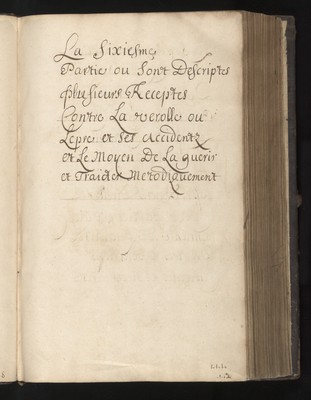 La Sixiesme
Partie ou Sont Descriptes
Plusieurs Receptes
Contre La verolle ou
Lepre et Ses Accidentz
et Le Moyen De La guerir
et Traicter Metodiquement